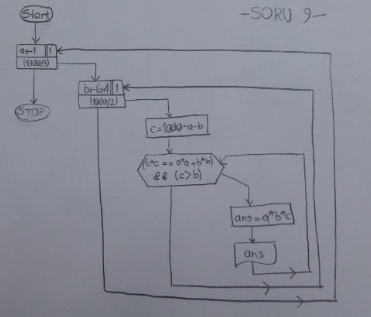 Start
-SORU 9-
a←1 1
(1000/3)
b←(a+1) 1
(1000/2)
STOP
c=1000-a-b
(c*c == a*a+b*b)
&& (c>b)
ans=a*b*c
ans